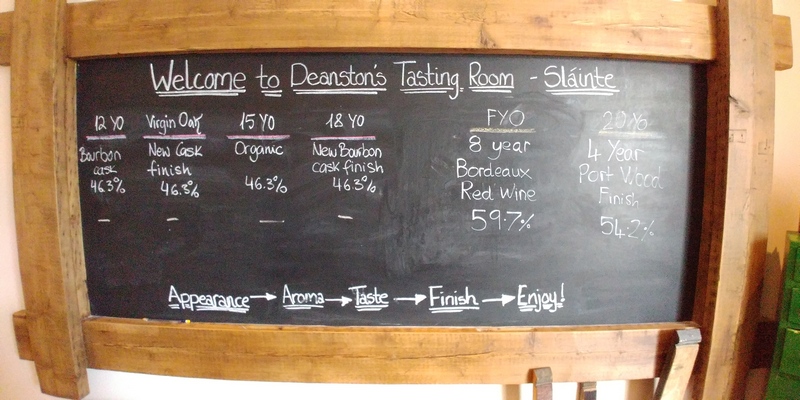 Welcome to Deanston's Tasting Room - Sláinte
12 YO
Bourbon
cask
46.3%
–
Virgin Oak
New Cask
finish
46.3%
–
15 YO
Organic
46.3%
–
18 YO
New Bourbon
cask finish
46.3%
–
FYO
8 year
Bordeaux
Red Wine
59.7%
20 Yo
4 Year
Port Wood
Finish
54.2%
Appearance → Aroma → Taste → Finish → Enjoy!